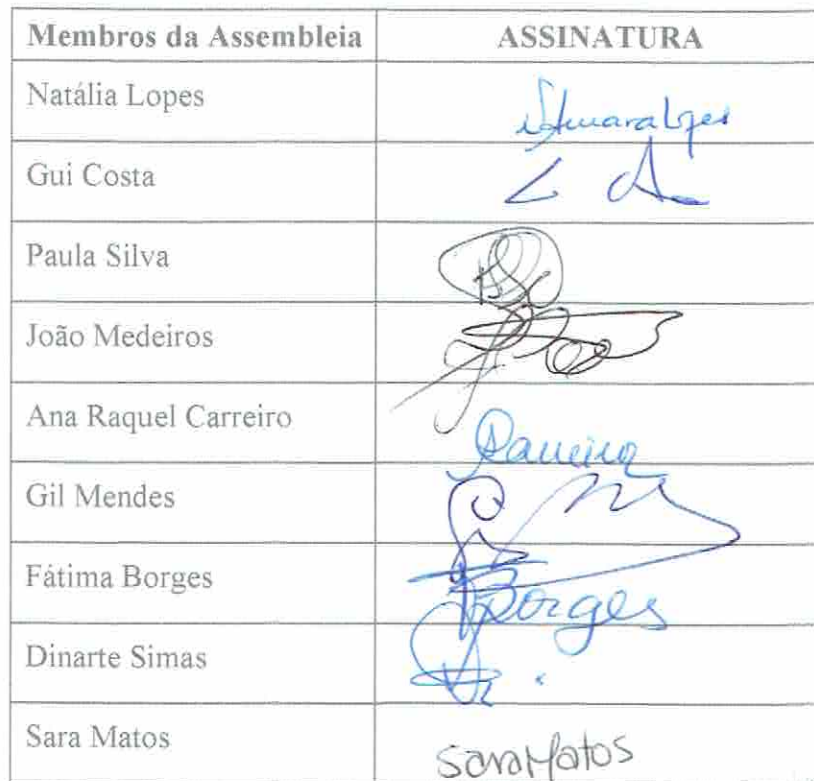 Membros da Assembleia ASSINATURA
Natália Lopes
Gui Costa
Paula Silva
João Medeiros
Ana Raquel Carreiro Carreiro
Gil Mendes
Fátima Borges Borges
Dinarte Simas
Sara Matos Sara Matos